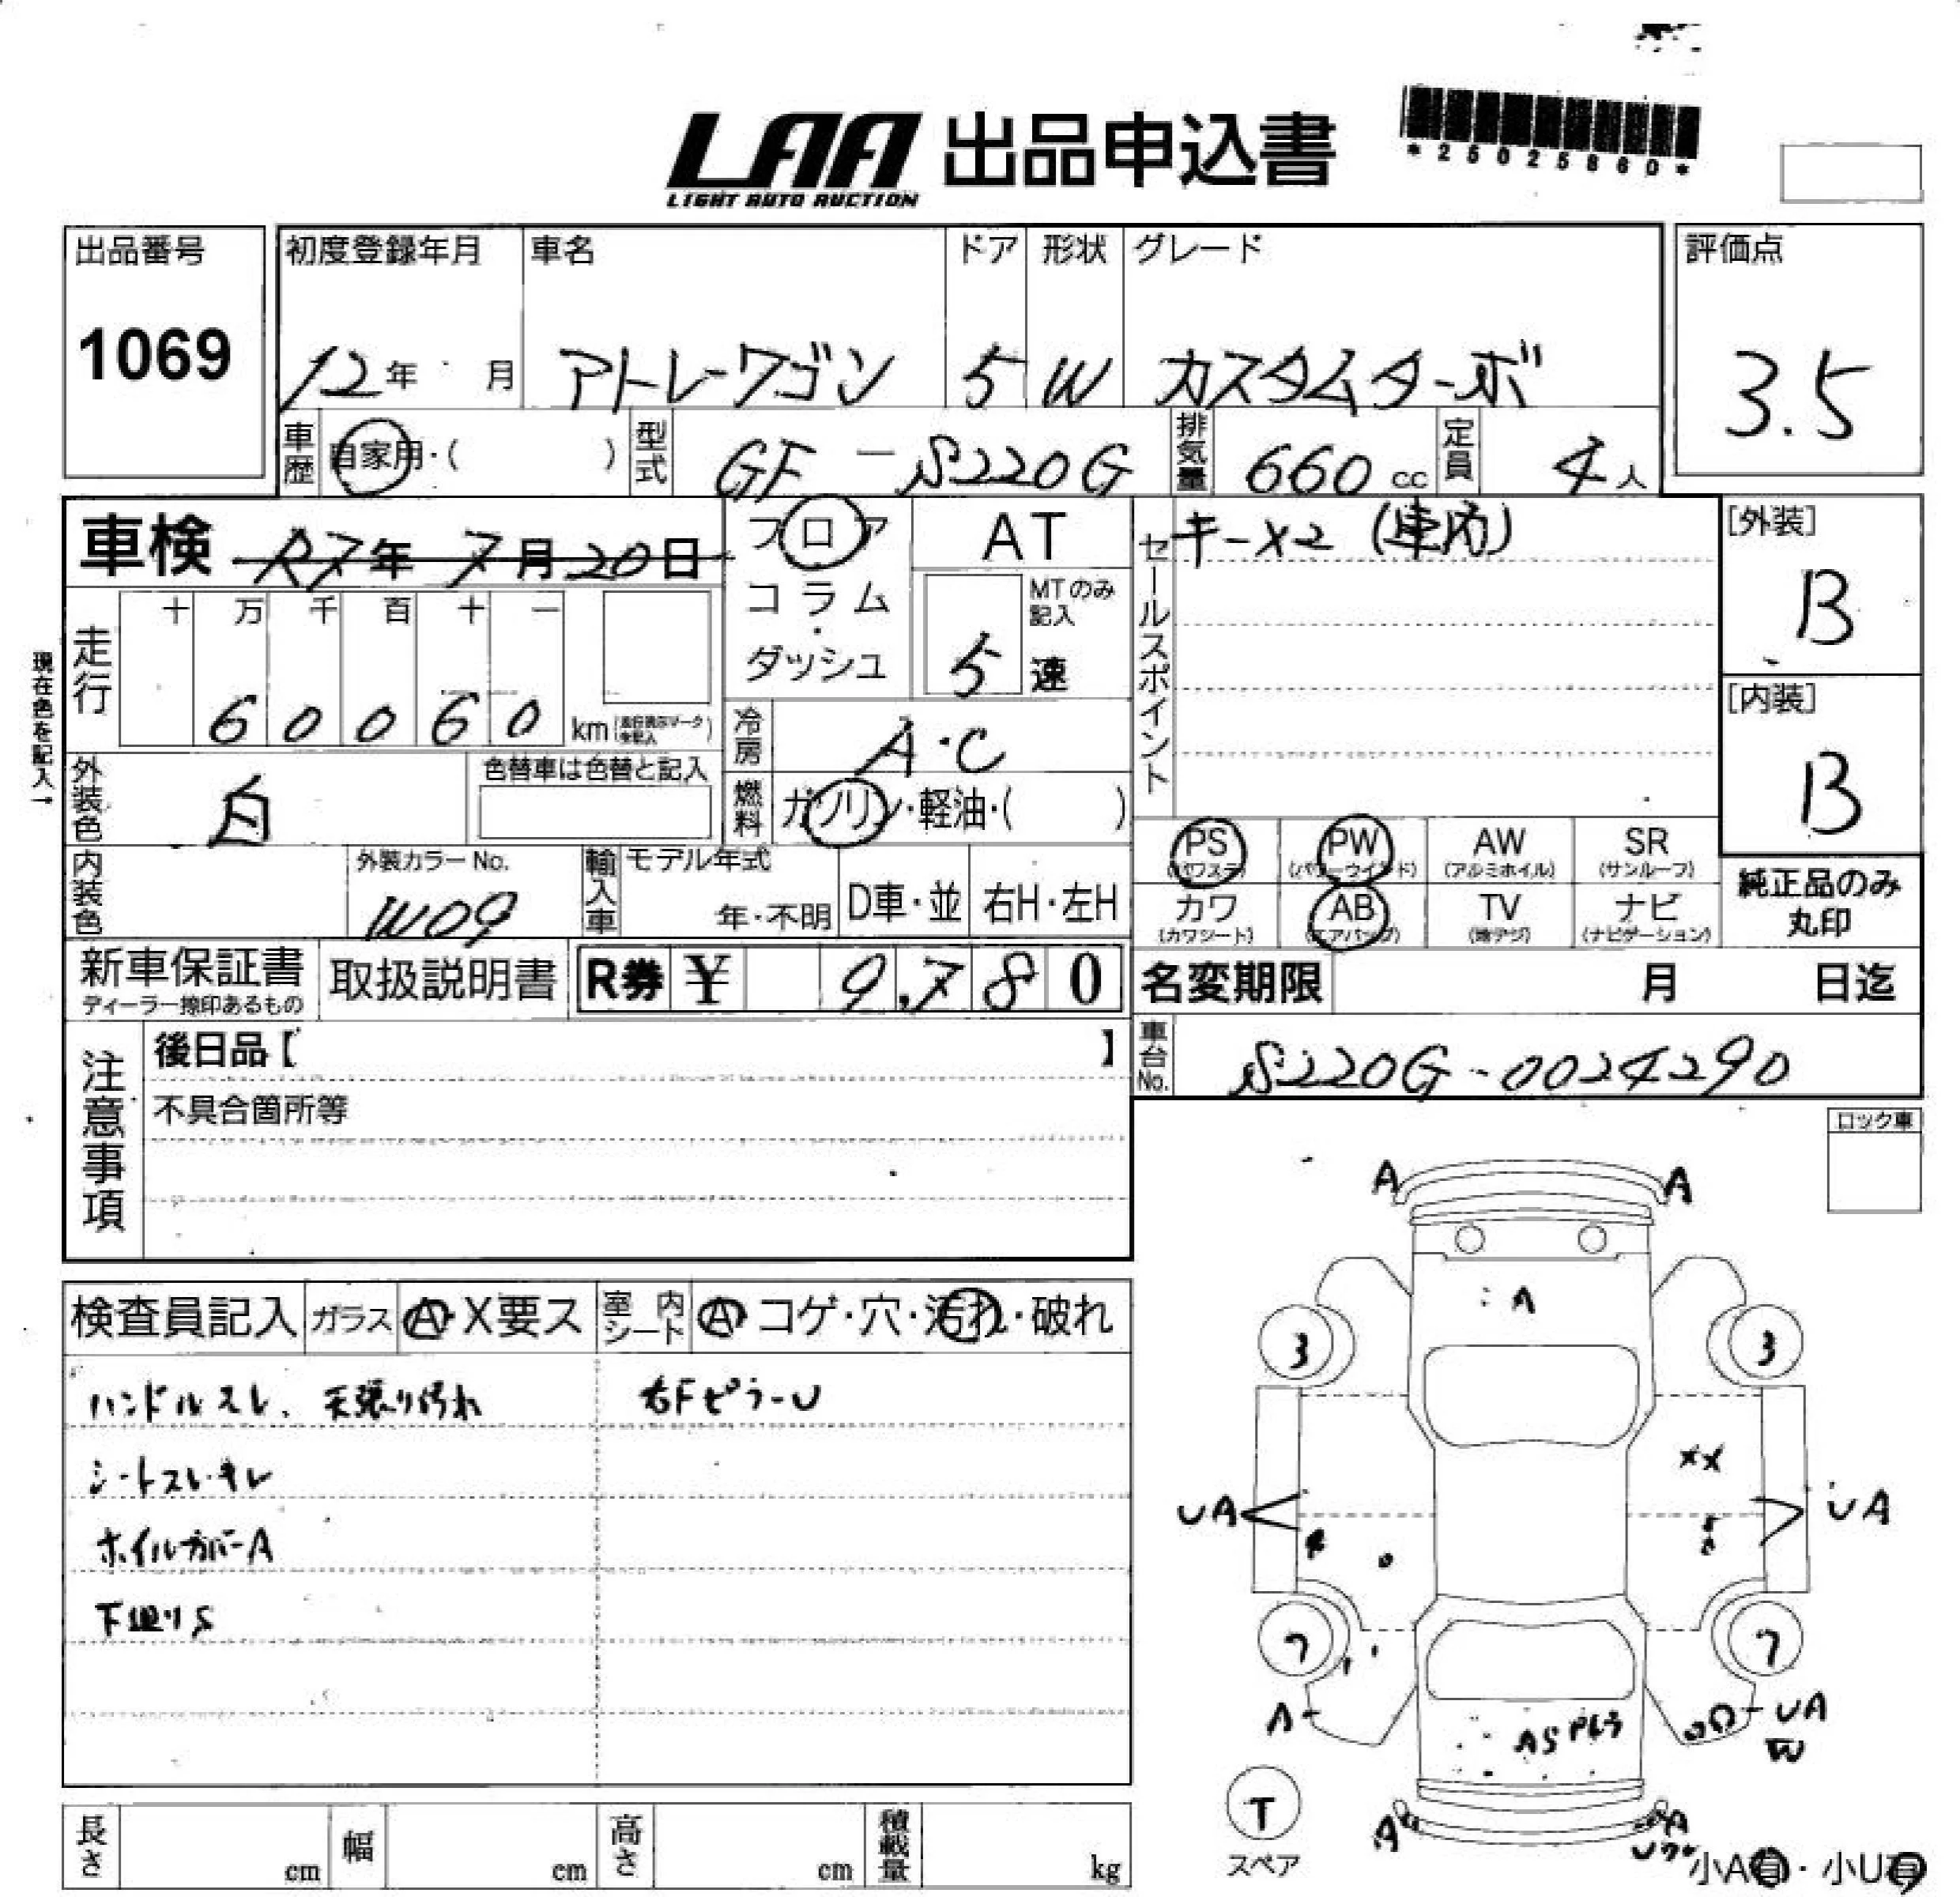 LAA 出品申込書
LIGHT AUTO AUCTION
*25025860*
出品番号
1069
初度登録年月
12年 月
車名
アトレーワゴン
ドア
5
形状
W
グレード
カスタムターボ
評価点
3.5
車歴 自家用・( )
型式 GF-S220G
排気量 660cc
定員 4人
車検 R7年7月20日
フロア
コラム
・
ダッシュ
AT
MTのみ
記入
5速
セールスポイント
キーX2 (車内)
[外装]
B
[内装]
B
現在色を記入→
走行
十 万 千 百 十 一
6 0 0 6 0 km
冷房 A・C
外装色 白
色替車は色替と記入
燃料 ガソリン・軽油・( )
PS AW SR
(パワステ) (アルミホイル) (サンルーフ)
PW
(パワーウインド)
カワ AB TV ナビ
(カワシート) (エアバッグ) (地デジ) (ナビゲーション)
純正品のみ
丸印
内装色
外装カラーNo.
W09
輸入車
モデル年式
年・不明
D車・並
右H・左H
新車保証書
ディーラー捺印あるもの
取扱説明書
R券 ¥ 9,780
名変期限 月 日迄
注意事項
後日品【 】
不具合箇所等
車台No. S220G-0024290
ロック車
検査員記入 ガラス A・X要ス 室内シート A・コゲ・穴・汚れ・破れ
ハンドルスレ、天張り汚れ
右FピラーU
シートスレ・キレ
ホイルカバーA
下廻りS
A A
A
3 3
XX
UA UA
7 7
A UA
W
AS
T
スペア
A A
小A有・小U有
長さ cm
幅 cm
高さ cm
積載量 kg